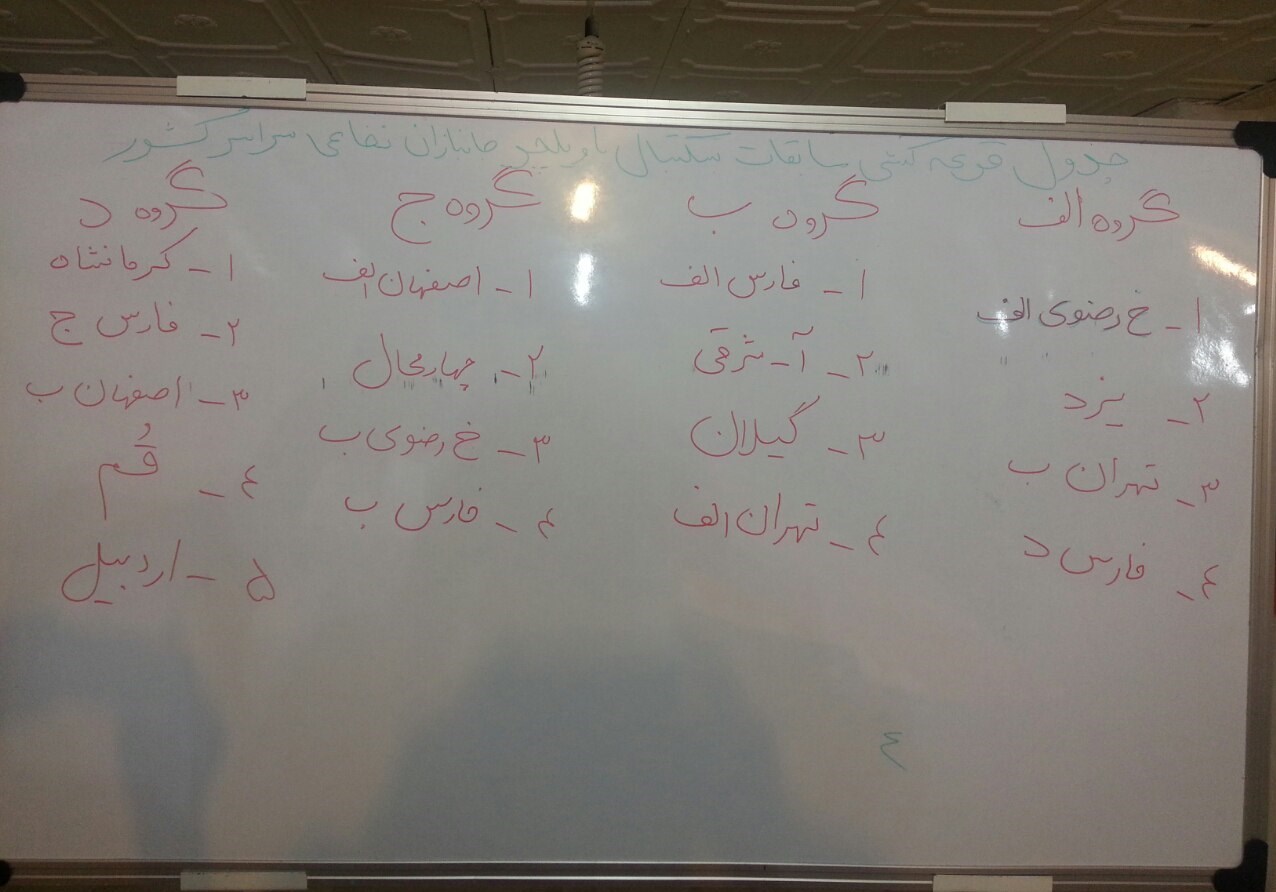 جدول قرعه کشی مسابقات بسکتبال با ویلچر جانبازان نخاعی سراسر کشور
گروه الف
۱- خ رضوی الف
۲- یزد
۳- تهران ب
۴- فارس د
گروه ب
۱- فارس الف
۲- آ- شرقی
۳- گیلان
۴- تهران الف
گروه ج
۱- اصفهان الف
۲- چهارمحال
۳- خ رضوی ب
۴- فارس ب
گروه د
۱- کرمانشاه
۲- فارس ج
۳- اصفهان ب
۴- قُم
۵- اردبیل
۴